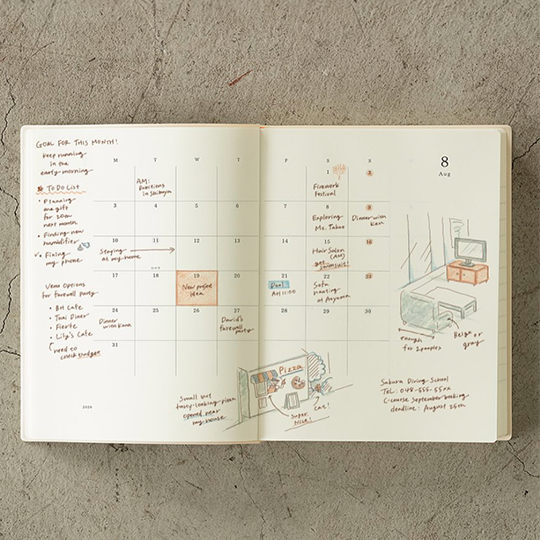 GOAL FOR THIS MONTH!
Keep running
in the
early morning
To Do List
• Planning
one gift
for 20th
next month
• Finding new
humidifier
• Fixing
my phone
Venue Options
for farewell party
• BM Cafe
• Thai Diner
• Fierte
• Lily's Cafe
need to
check budget
2026
M
T
W
T
AM:
in Shibuya
3
4
5
6
10
11
12
13
Staying
at my home
17
18
19
20
New project
Idea
24
25
26
27
Dinner
with Kana
David's
farewell
party
31
F
S
S
8
Aug
1
2
Firework
festival
7
8
9
Exploring
Mt. Takao
Dinner with
Ken
14
15
16
Hair Salon
(AM)
get
21
22
23
AM 11:00
Sofa
Hunting
at Aoyama
28
29
30
enough
for 2 peoples
Beige or
gray
Small but
tasty-looking pizza
opened near
my house
PIZZA
Super
NICE!
Cat!
Sakura Diving School
TEL: 048-555-55xx
C-course September booking
deadline: August 25th